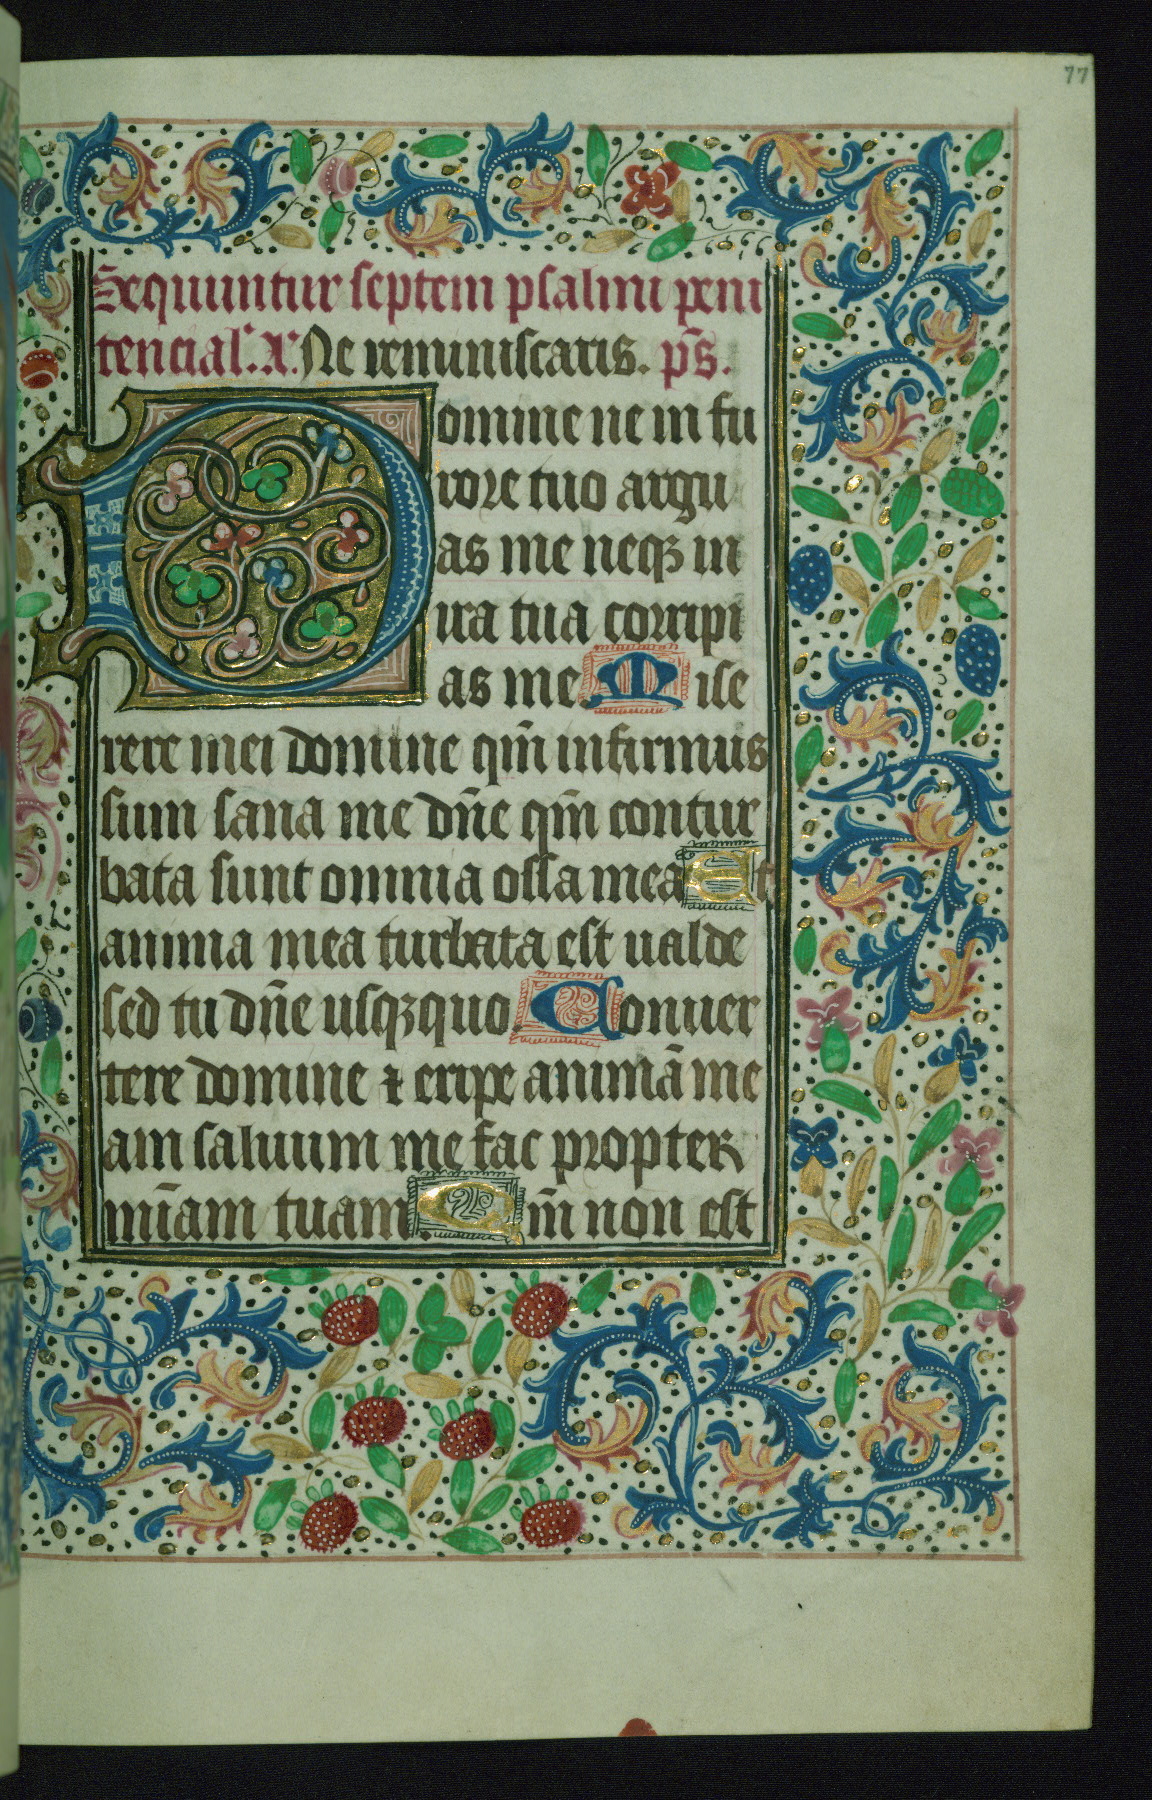 77
Sequuntur septem psalmi peni
tencial'. A'. Ne reminiscaris. ps̄.
Domine ne in fu
rore tuo argu
as me neqꝫ in
ira tua corripi
as me. Mise
rere mei domine qm̄ infirmus
sum sana me dn̄e qm̄ contur
bata sunt omnia ossa mea Et
anima mea turbata est ualde
sed tu dn̄e usqꝫquo. Conuer
tere domine ⁊ eripe animā me
am saluum me fac propter
mīam tuam. Qm̄ non est